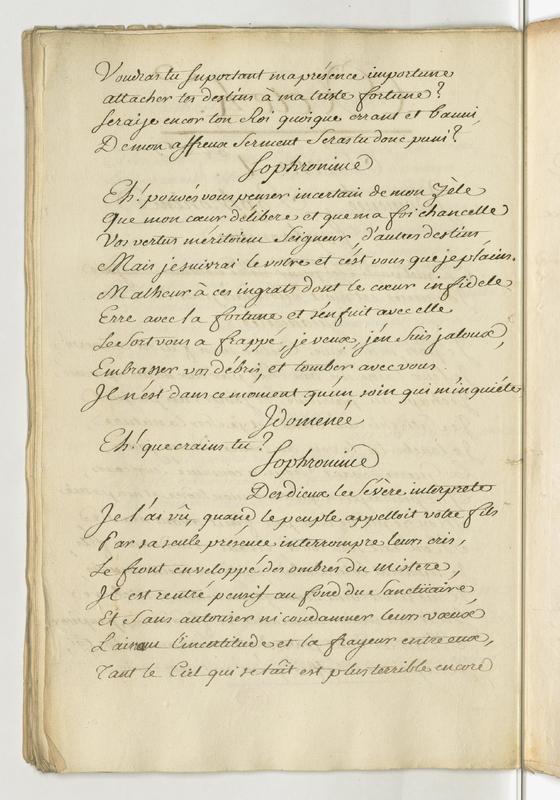 Voudras tu Suportant ma présence importune
attacher tes destins à ma triste fortune?
Serai je encor ton Roi quoique errant et banni,
De mon affreux Serment Seras tu donc puni?
Sophronime
Eh! pouvés vous penser incertain de mon Zéle
Que mon cœur délibere et que ma foi chancelle
Vos vertus méritoient Seigneur d'autres destins
Mais je suivrai le votre et c'est vous que je plains.
Malheur à ces ingrats dont le cœur infidele
Erre avec la fortune et s'enfuit avec elle
Le Sort vous a frappé, je veux, j'en Suis jaloux,
Embrasser vos débris, et tomber avec vous.
Il n'est dans ce moment qu'un soin qui m'inquiéte
Idomenée
Eh! que crains tu?
Sophronime
Des dieux le Sévère interprete
Je l'ai vû, quand le peuple appelloit votre fils
Par sa seule présence interrompre leurs cris,
Le front enveloppé des ombres du mistere,
Il est rentré pensif au fond du Sanctüaire
Et Sans autoriser ni condamner leurs vœux
L'incertitude et la frayeur entre eux,
Tant le Ciel qui se tâit est plus terrible encore